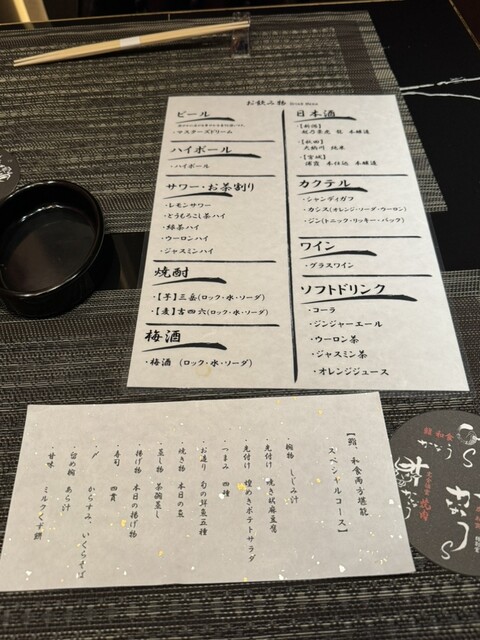 お飲み物 Drink Menu
ビール
・マスターズドリーム
ハイボール
・ハイボール
サワー・お茶割り
・レモンサワー
・とうもろこし茶ハイ
・緑茶ハイ
・ウーロンハイ
・ジャスミンハイ
焼酎
・【芋】三岳(ロック・水・ソーダ)
・【麦】吉四六(ロック・水・ソーダ)
梅酒
・梅酒 (ロック・水・ソーダ)
日本酒
・【新潟】
越乃景虎 龍 本醸造
・【秋田】
純米
・【宮城】
浦霞 本仕込 本醸造
カクテル
・シャンディガフ
・カシス(オレンジ・ソーダ・ウーロン)
・ジン(トニック・リッキー・バック)
ワイン
・グラスワイン
ソフトドリンク
・コーラ
・ジンジャーエール
・ウーロン茶
・ジャスミン茶
・オレンジジュース
【鮨 和食両方堪能
スペシャルコース】
・椀物 しじみ汁
・先付け 焼き胡麻豆腐
・先付け 煌めきポテトサラダ
・つまみ 四種
・お造り 旬の鮮魚五種
・焼き物 本日の魚
・蒸し物 茶碗蒸し
・揚げ物 本日の揚げ物
・寿司 四貫
・〆 からすみ、いくらそば
・留め椀 あら汁
・甘味 ミルクくず餅
鮨 和食
焼肉